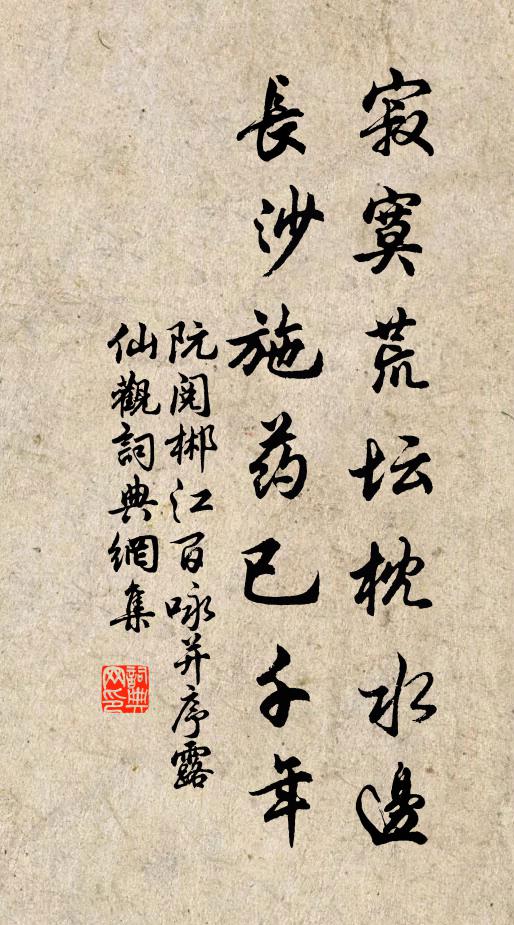 寂寞荒坛枕水邊
長沙施药已千年
阮閱郴江百咏并序露
仙觀詞典網集
詞典网印